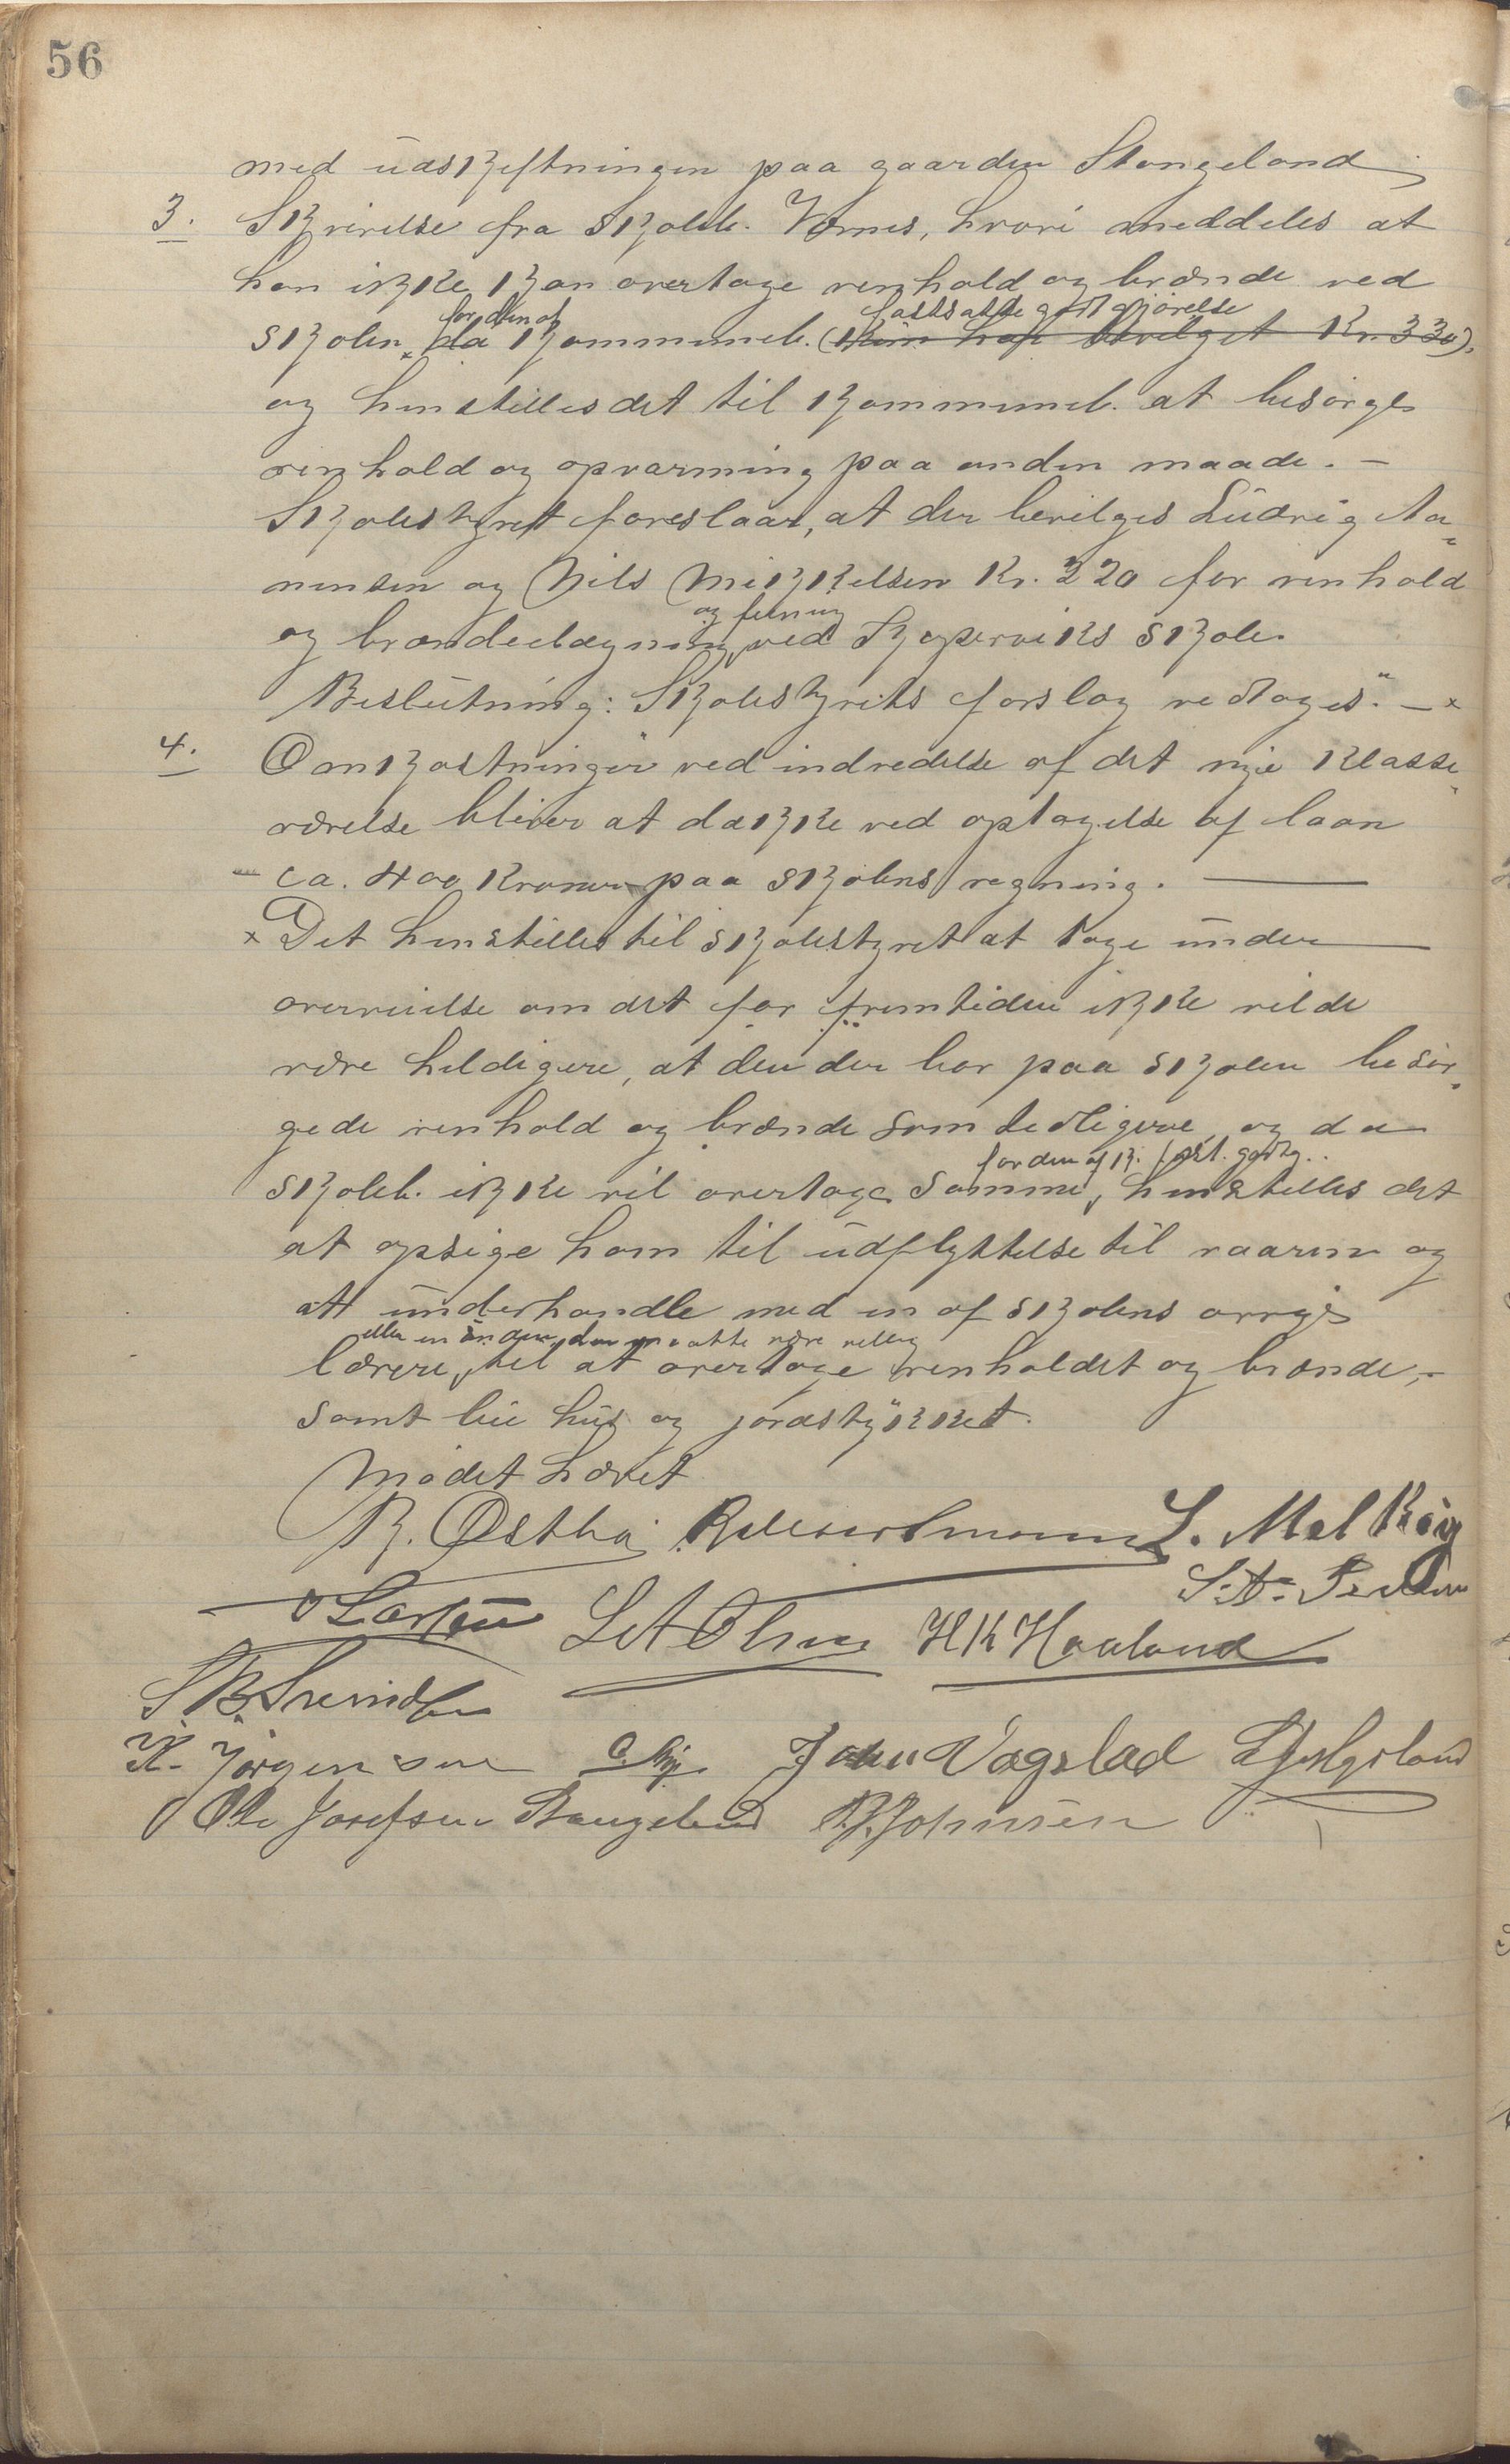 56
med udskiftningen paa gaarden Stangeland
3. Skrivelse fra skoleb. Vornes, hvori meddeles at
han ikke kan overtage renhold og brænde ved
for den af fastsatte godtgjörelse
skolen, da kommuneb. (kun har bevilget Kr. 330).
og henstilles det til kommuneb. at besörge
renhold og opvarming paa anden maade. –
Skolestyret foreslaar, at der bevilges Ludvig Aa-
nensen og Nils Mikkelsen Kr. 220 for renhold
og feining
og brændeilægning ved Kopervik's skole.
Beslutning: "Skolestyrets forslag vedtages". – ×
4. Omkostninger ved indredelse af det nye klasse-
værelse bliver at dække ved optagelse af laan
– ca. 400 Kroner paa skolens regning. –
× Det henstilles til skolestyret at tage under
overveielse om det for fremtiden ikke vilde
være heldigere, at den der bor paa skolen besör-
gede renhold og brænde som tidligere, og da
for den af k. fast. godtg..
skoleb. ikke vil overtage samme, henstilles det
at opsige ham til udflyttelse til vaaren og
at underhandle med en af skolens övrige
eller en anden, der maatte være villig
lærere, til at overtage renholdet og brænde, –
samt bli hus og jordstykket.
Mödet hævet
R. Østhus L. Mel Kvig
O Larsen L A Olsen H K Haaland
S B Svendsen
K. Jörgensen O. Nye John Vagslad
Ole Josefsen Stangeland B. Johnsen